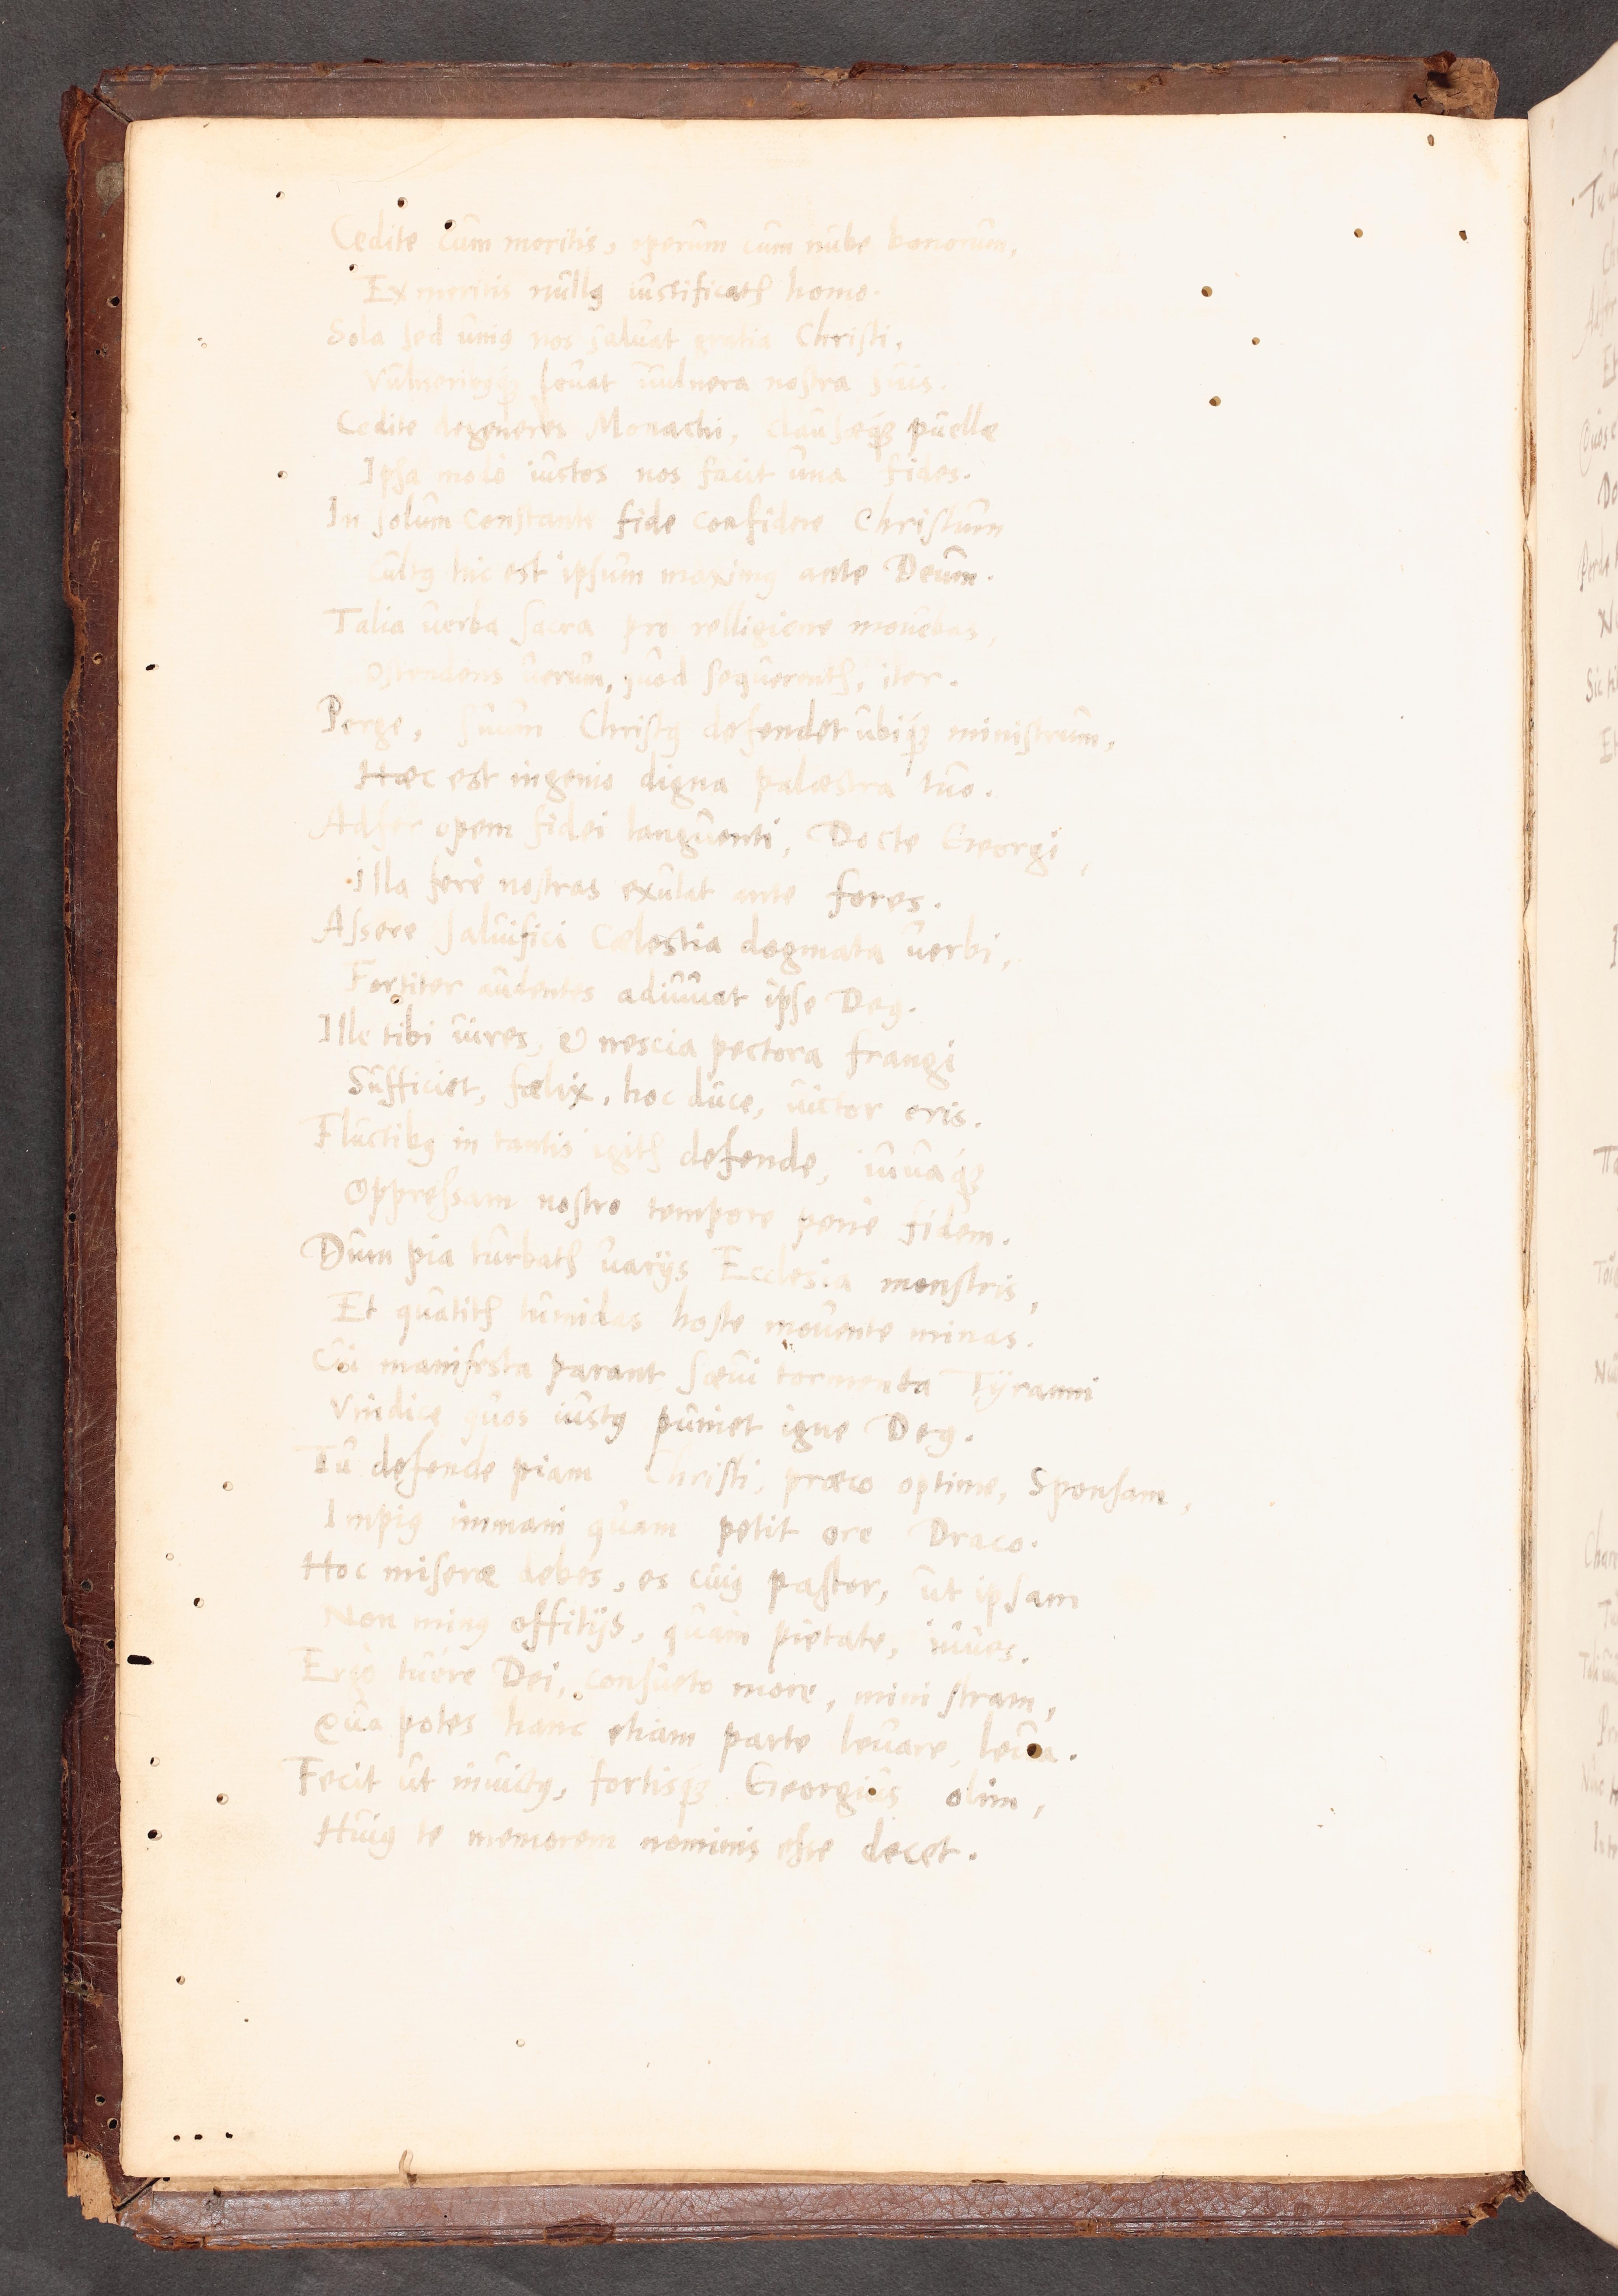 Cedite cûm meritis, operûm cûm nûbe bonorûm,
Ex meritis nûllꝰ iûstificatꝛ homo.
Sola sed ûniꝰ nos salûat gratia Christi,
Vûlneribꝰq́ꝫ foûat ûûlnera nostra sûis.
Cedite degeneres Monachi, claûsæq́ꝫ pûellæ
Ipsa modò iûstos nos facit ûna fides.
In solûm constante fide confidere Christûm
Cûltꝰ hic est ipsûm maximꝰ ante Deûm.
Talia ûerba sacra pro relligione moûebas,
Ostendens ûerûm, qûod seqûerentꝛ, iter.
Perge, sûûm Christꝰ defendet ûbiq́ꝫ ministrûm,
Hæc est ingenio digna palæstra tûo.
Adfer opem fidei langûenti, Docte Georgi,
Illa ferè nostras exûlat ante fores.
Assere salûifici Cœlestia dogmata ûerbi,
Fortiter aûdentes adiûûat ipse Deꝰ.
Ille tibi ûires, & nescia pectora frangi
Sûfficiet, fœlix, hoc dûce, ûictor eris.
Flûctibꝰ in tantis igitꝛ defende, iûûaq́ꝫ
Oppressam nostro tempore penè fidem.
Dûm pia tûrbatꝛ ûarijs Ecclesia monstris,
Et qûatitꝛ tûmidas hoste moûente minas.
Cûi manifesta parant sæûi tormenta Tÿranni
Vindice qûos iûstꝰ pûniet igne Deꝰ.
Tû defende piam Christi, præco optime, Sponsam,
Impiꝰ immani qûam petit ore Draco.
Hoc miseræ debes, es cûiꝰ pastor, ût ipsam
Non minꝰ offitijs, qûàm pietate, iûûes.
Ergò tûère Dei, consûeto more, ministram,
Qûa potes hanc etiam parte leûare, leûa.
Fecit ût inûictꝰ, fortisq́ꝫ Georgiûs olim,
Hûiꝰ te memorem nominis esse decet.